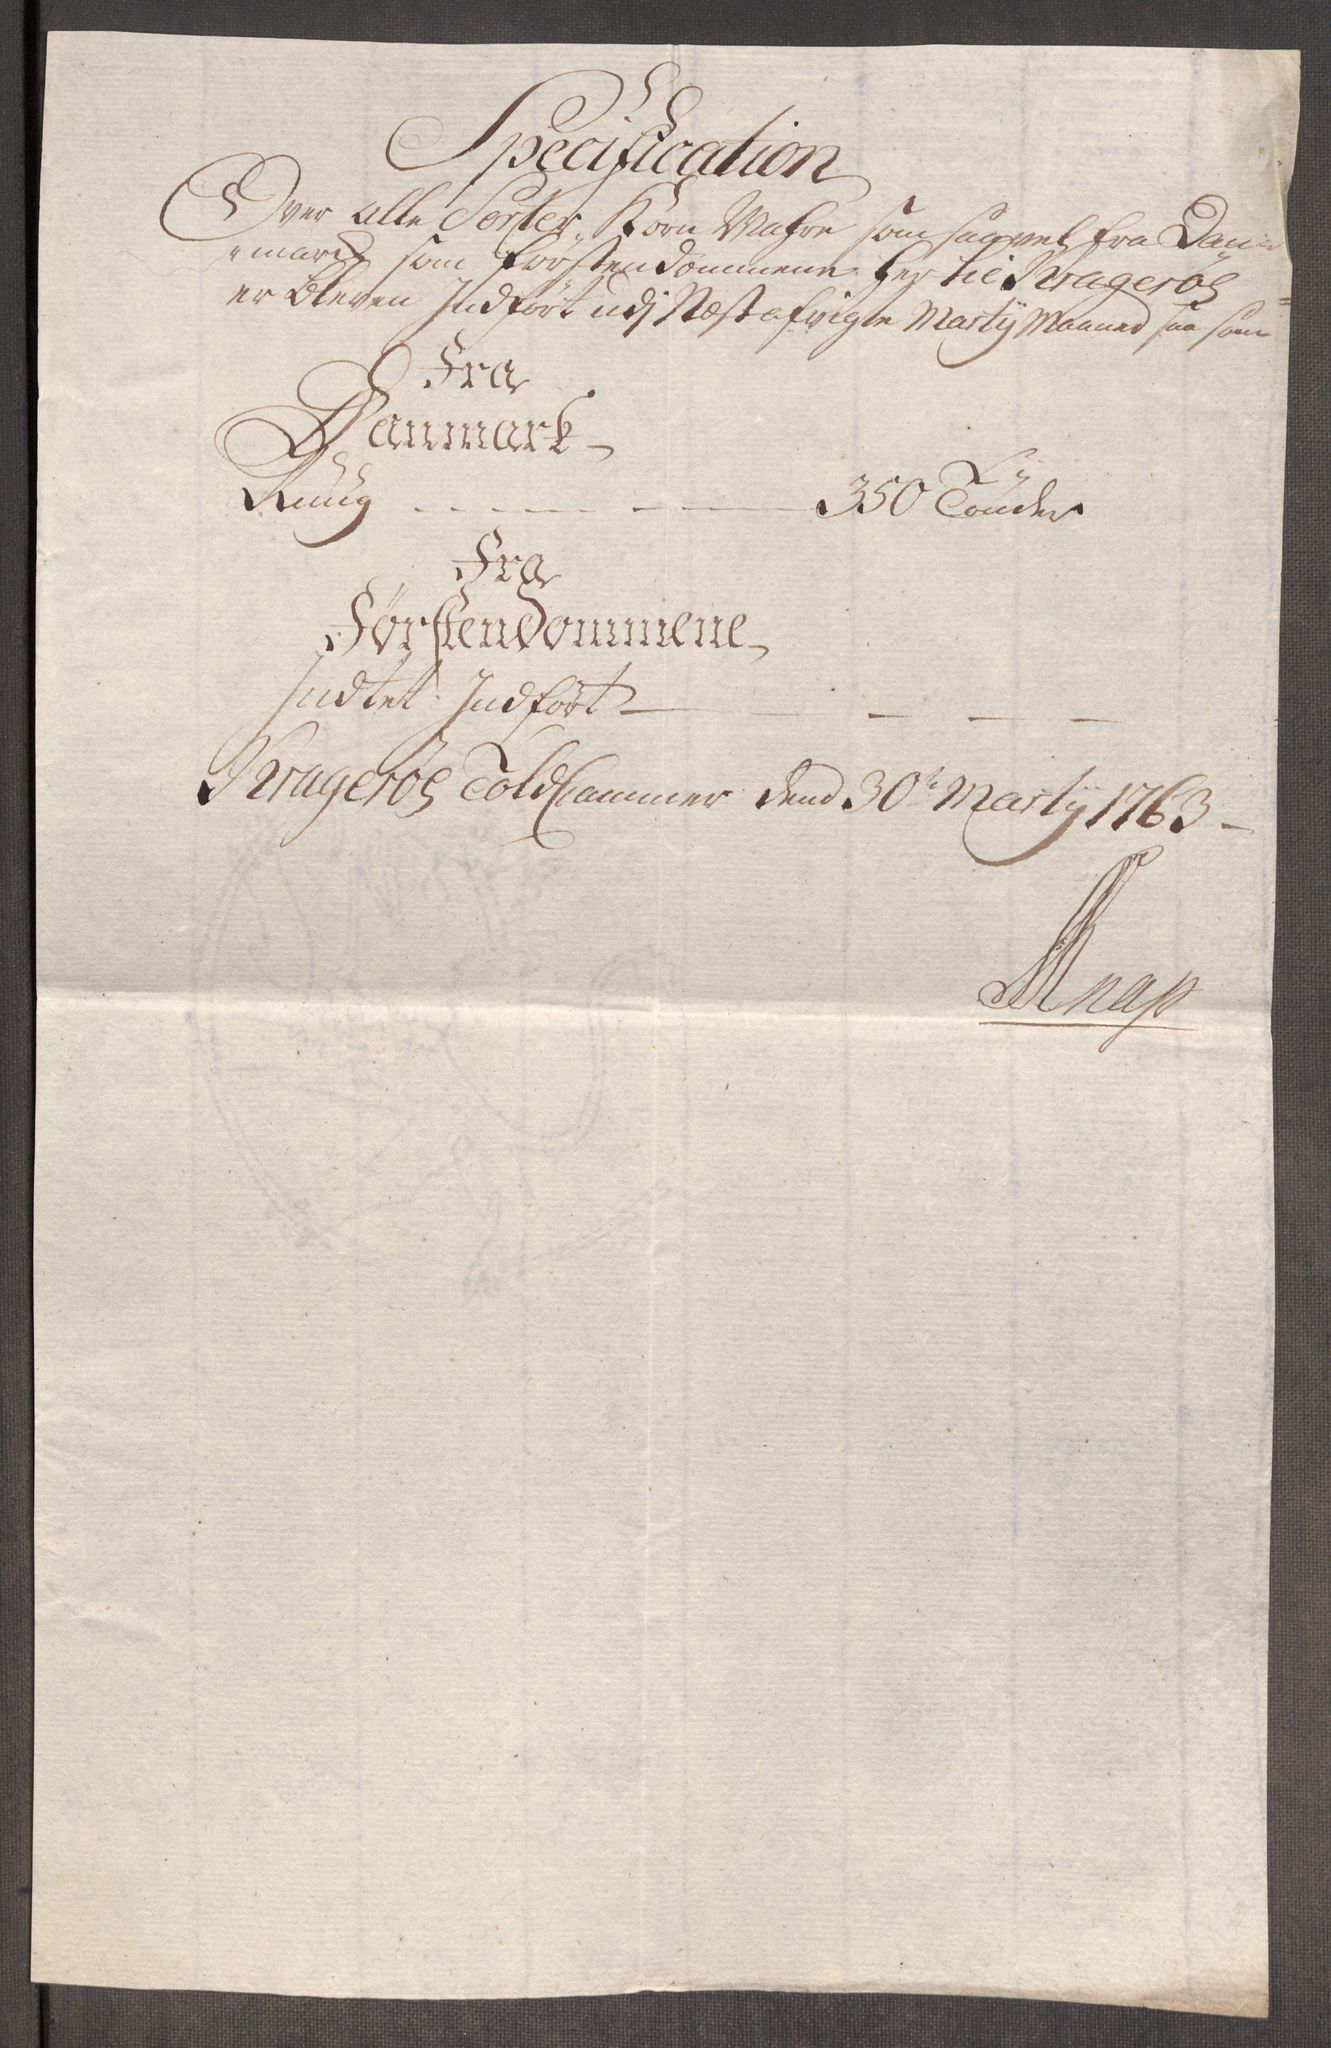 Specification
Over alle Sorter Korn Vahre som saavel fra Dan=
=marck som Førstendommene her til Kragerøe
er bleven Indført udj Næst afvigte Martÿ Maaned saa som
Fra
Danmark
Ruug 350 Tønder
Fra
Førstendommene
Indtet Indført
Kragerøe Told Cammer dend 30t Martÿ 1763
Knap